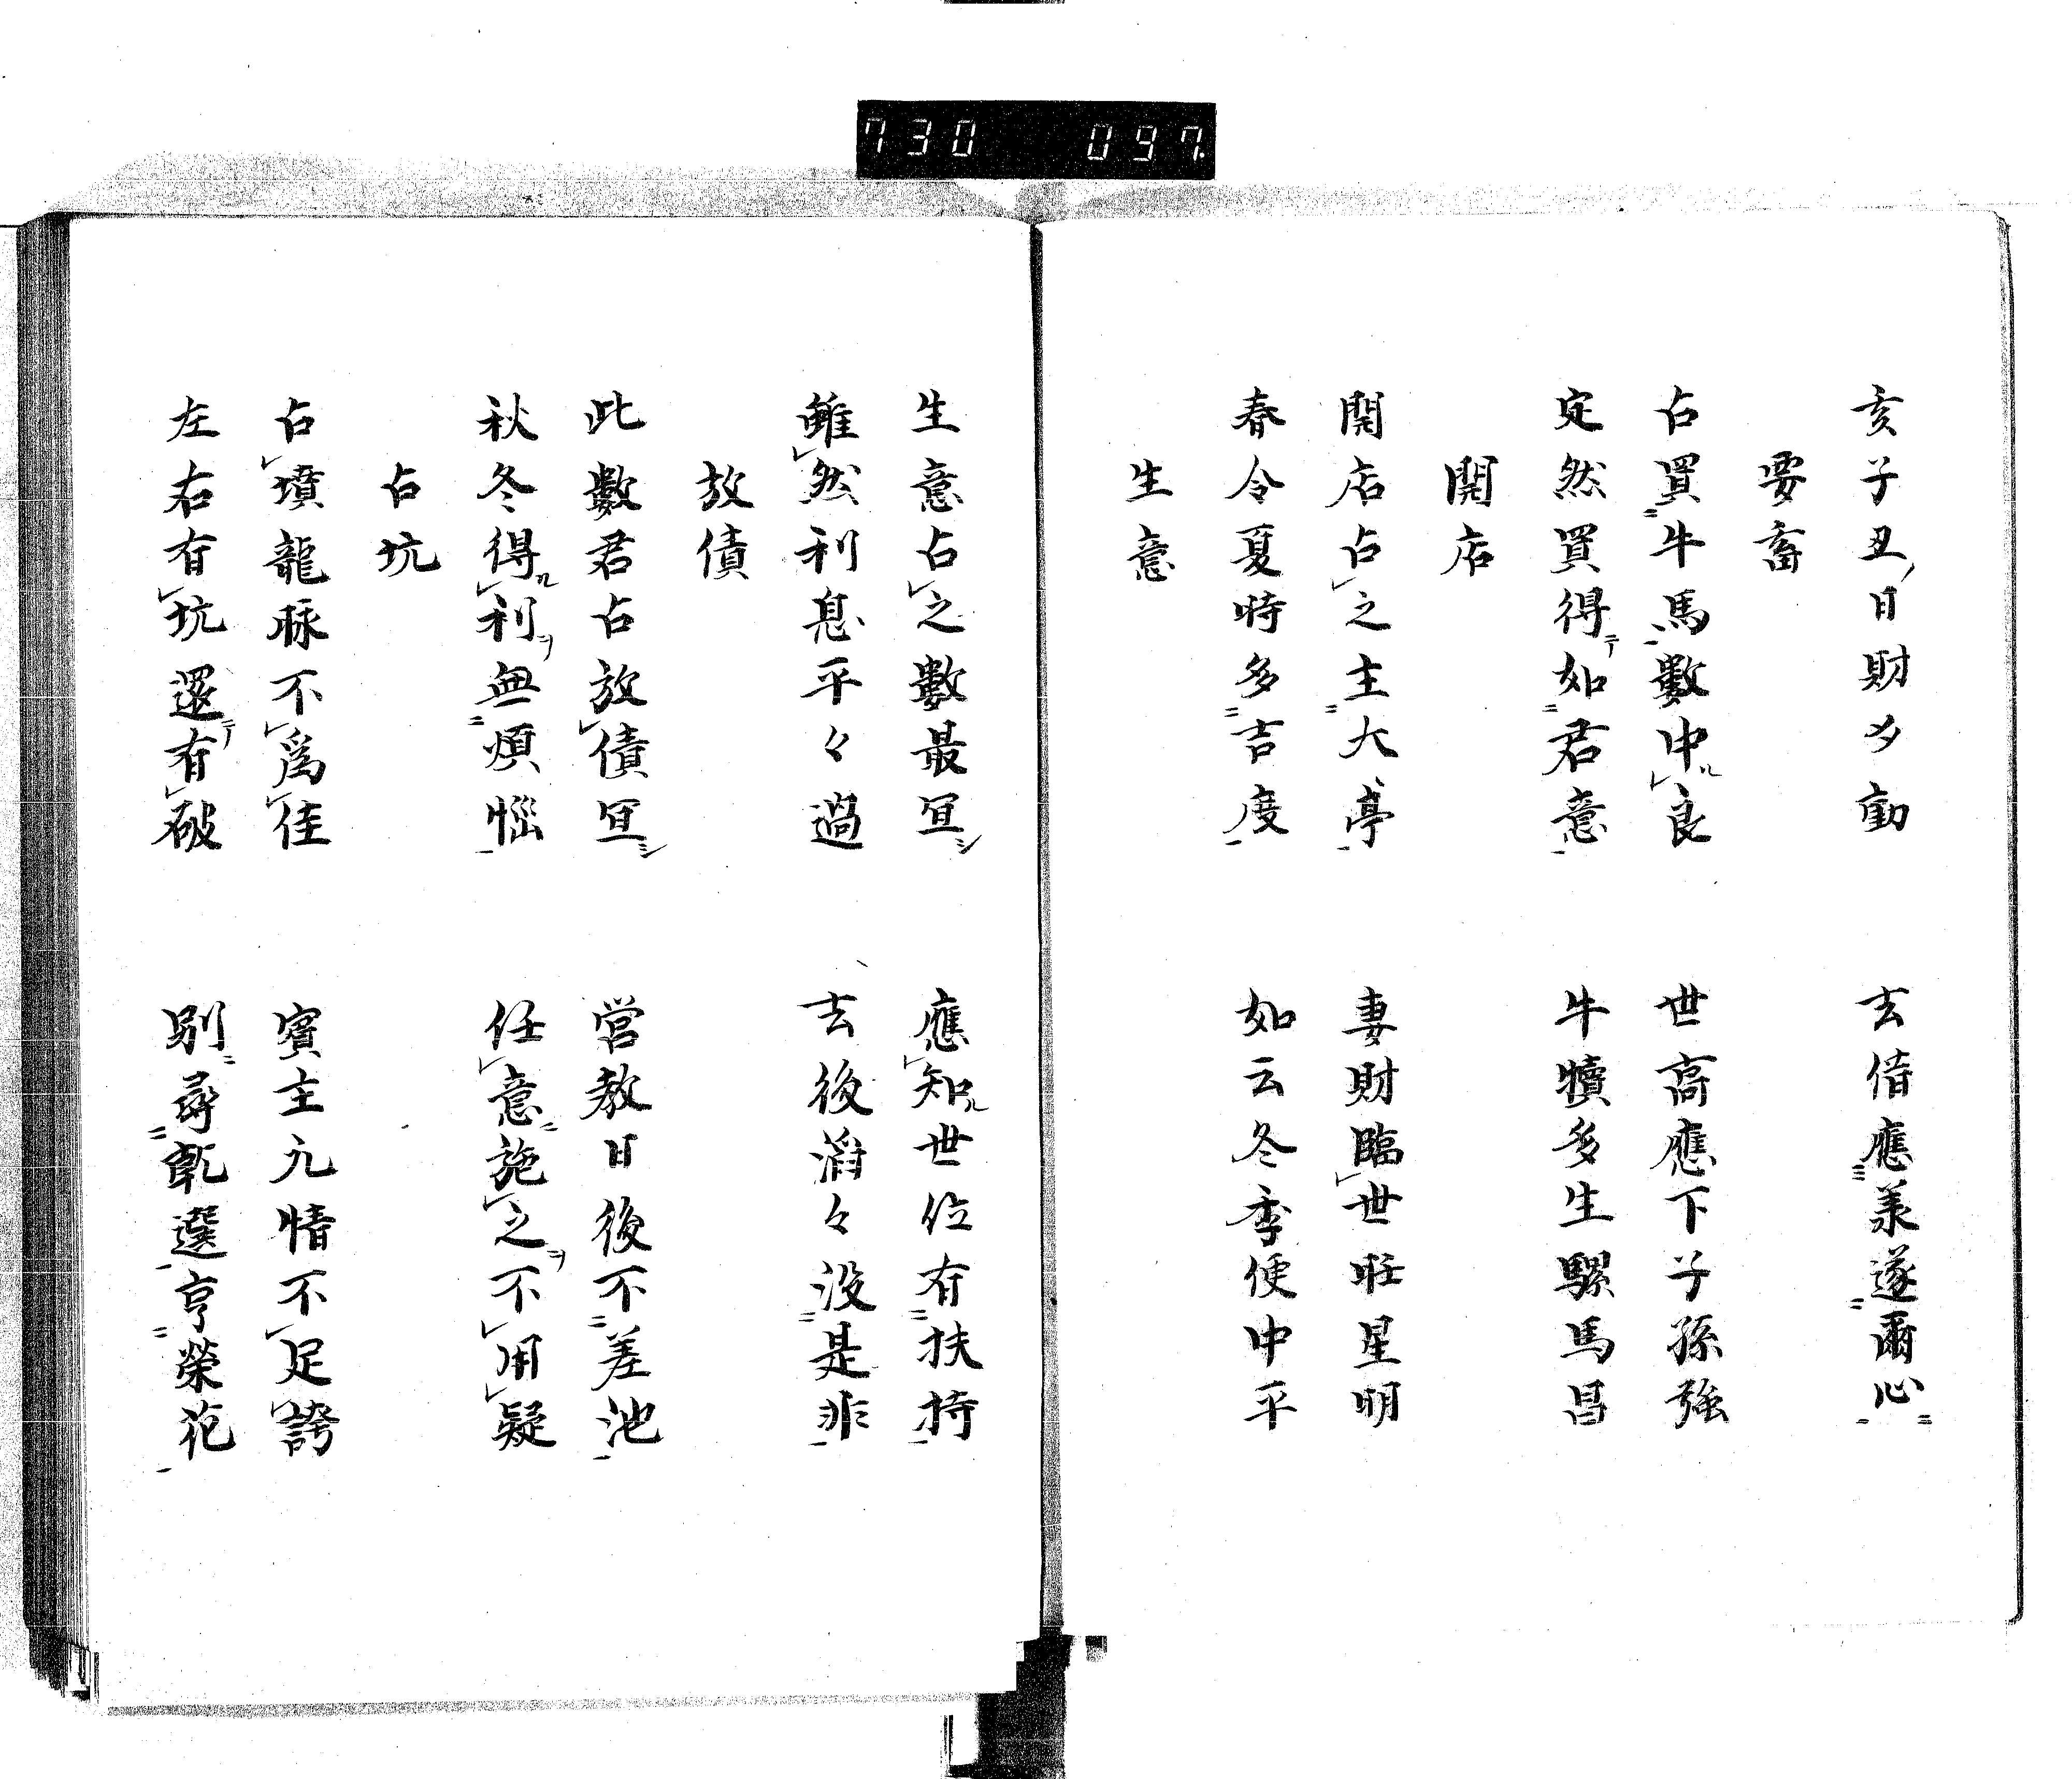 730 097
亥子丑日財爻動 去借應羕遂爾心
要畜
占買牛馬數中良 世高應下子孫強
定然買得如君意 牛犢多生騾馬昌
開店
開店占之主大亭 妻財臨世旺星明
春令夏時多吉度 如云冬季便中平
生意
生意占之數最宜 應知世位有扶持
雖然利息平々過 去後滔々没是非
放債
此數君占放債宜 営教日後不差池
秋冬得利無煩惱 任意施之不用疑
占坑
占墳龍脉不爲佳 賓主九情不足誇
左右有坑還有破 別尋乾選亨榮花